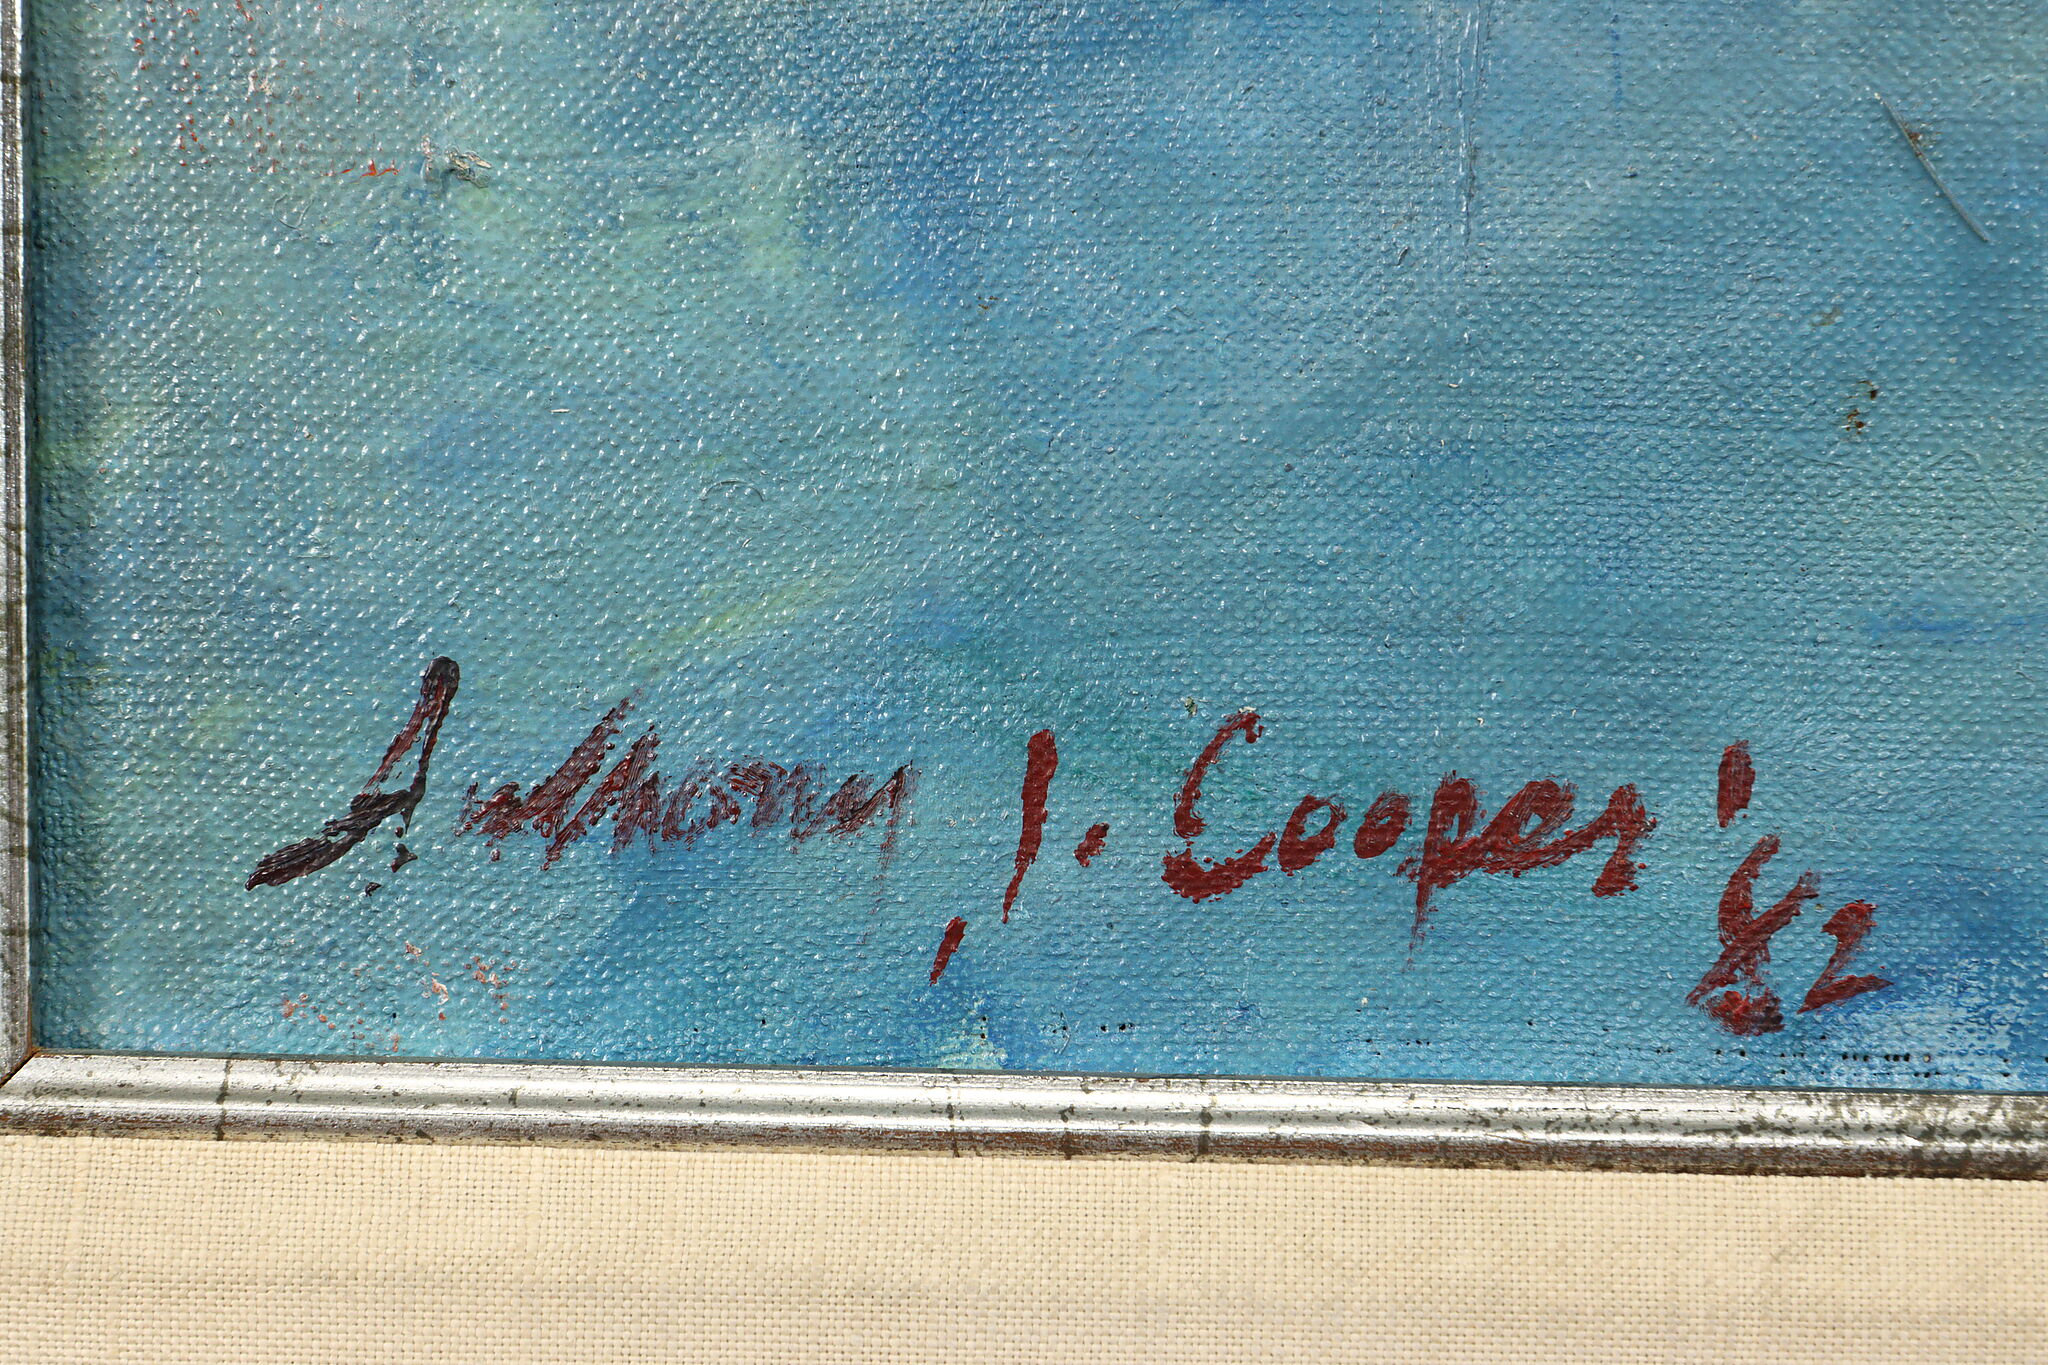 Anthony J. Cooper '82